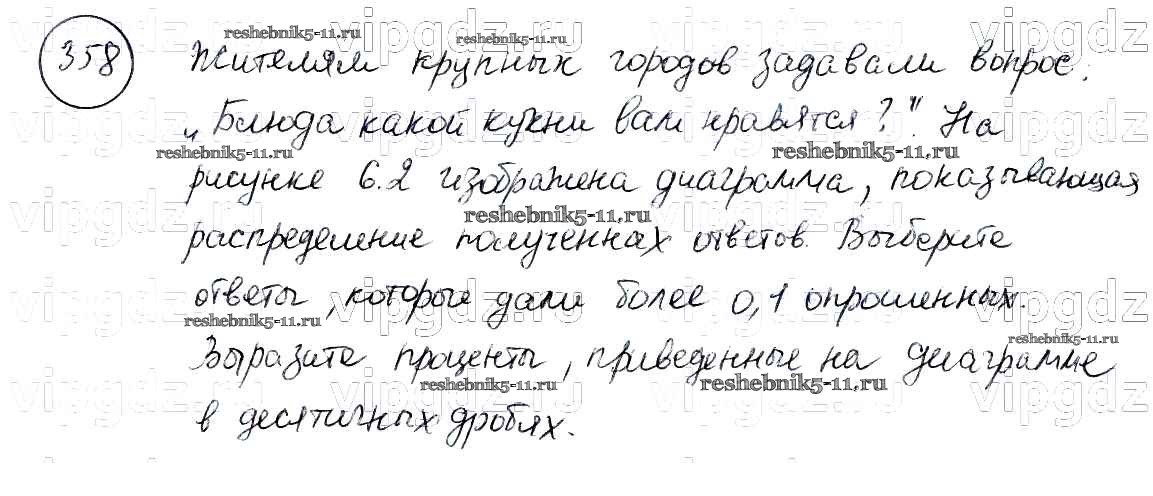 358 Жителям крупных городов задавали вопрос:
„Блюда какой кухни вам нравятся?". На
рисунке 6.2 изображена диаграмма, показывающая
распределение полученных ответов. Выберите
ответы, которые дали более 0,1 опрошенных.
Выразите проценты, приведенные на диаграмме
в десятичных дробях.
reshebnik5-11.ru
vipgdz.ru